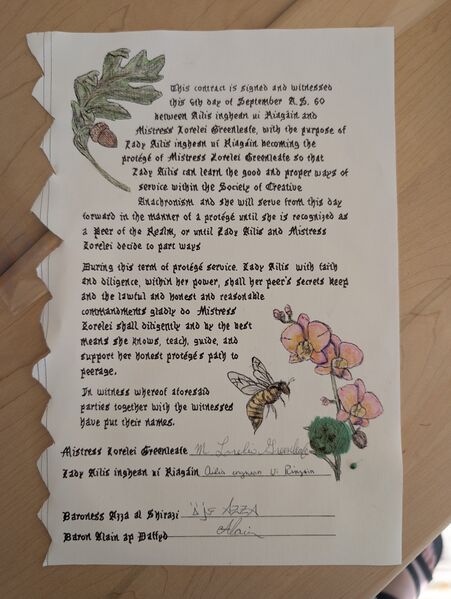 This contract is signed and witnessed
this 6th day of September A.S. 60
between Ailis inghean ui Riagáin and
Mistress Lorelei Greenleafe, with the purpose of
Lady Ailis inghean ui Riagáin becoming the
protégé of Mistress Lorelei Greenleafe so that
Lady Ailis can learn the good and proper ways of
service within the Society of Creative
Anachronism and she will serve from this day
forward in the manner of a protégé until she is recognized as
a Peer of the Realm, or until Lady Ailis and Mistress
Lorelei decide to part ways
During this term of protégé service. Lady Ailis with faith
and diligence, within her power, shall her peer's secrets keep
and the lawful and honest and reasonable
commandments gladly do Mistress
Lorelei shall diligently and by the best
means she knows, teach, guide, and
support her honest protégé's path to
peerage.
In witness whereof aforesaid
parties together with the witnesses
have put their names.
Mistress Lorelei Greenleafe M Lorelei Greenleafe
Lady Ailis inghean ui Riagáin Ailis inghean Ui Riagáin
Baroness Azza al Shirazi AZZA
Baron Alain ap Dafyd Alain